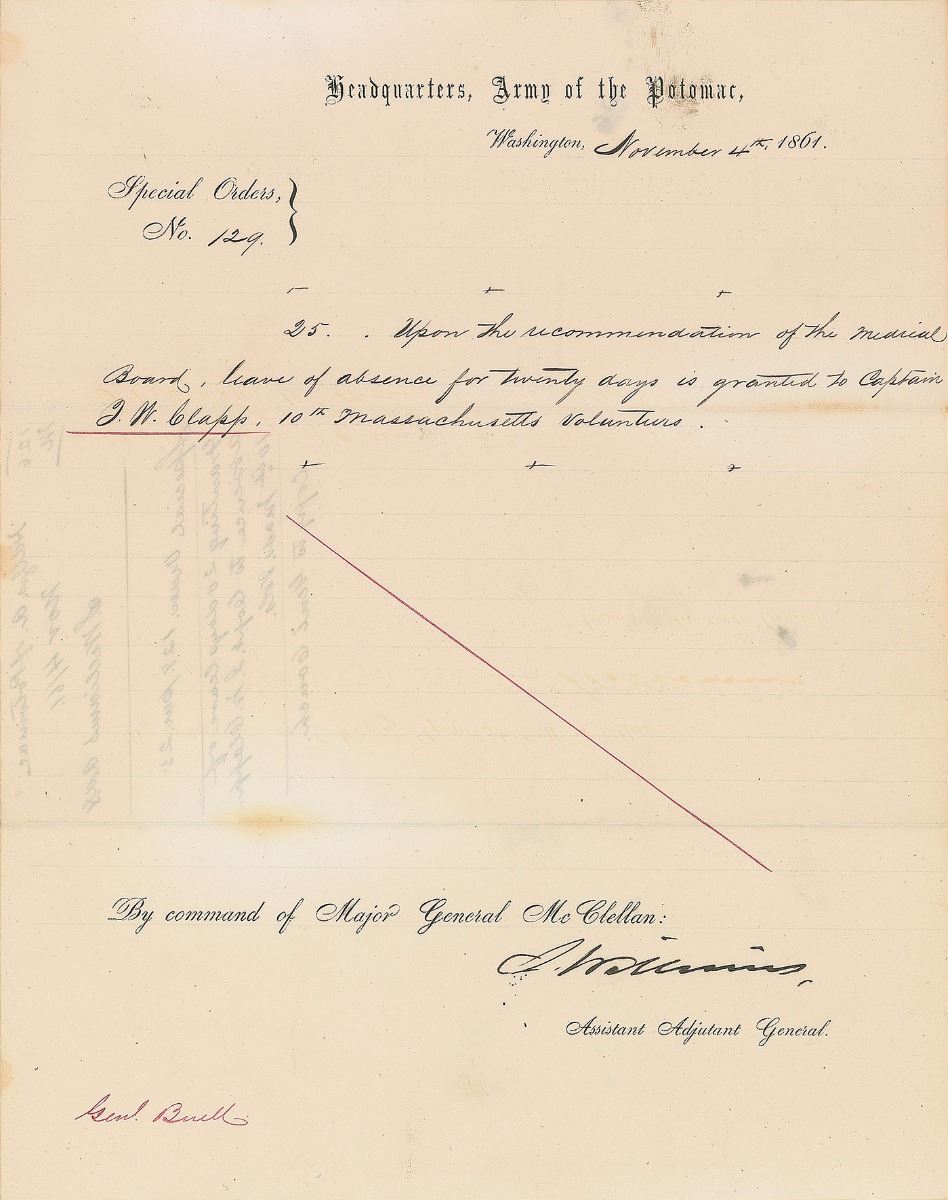 Headquarters, Army of the Potomac,
Washington, November 4th, 1861.
Special Orders,
No. 129.
25. . Upon the recommendation of the Medical
Board, leave of absence for twenty days is granted to Captain
J. W. Clapp, 10th Massachusetts Volunteers.
By command of Major General McClellan:
S. Williams,
Assistant Adjutant General.
Genl. Buell